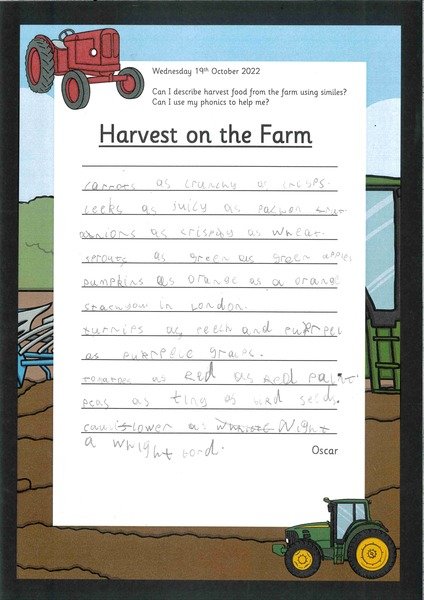 Wednesday 19th October 2022
Can I describe harvest food from the farm using similes?
Can I use my phonics to help me?
Harvest on the Farm
carrots as crunchy as
leeks as juicy as
as crispay as wheat.
sprouts as green as green apples
pumpkins as orange as a orange
in London.
turnips as and
as graps.
as Red as Red paint.
peas as tiny as bird seeds.
as
a whight bord.
Oscar